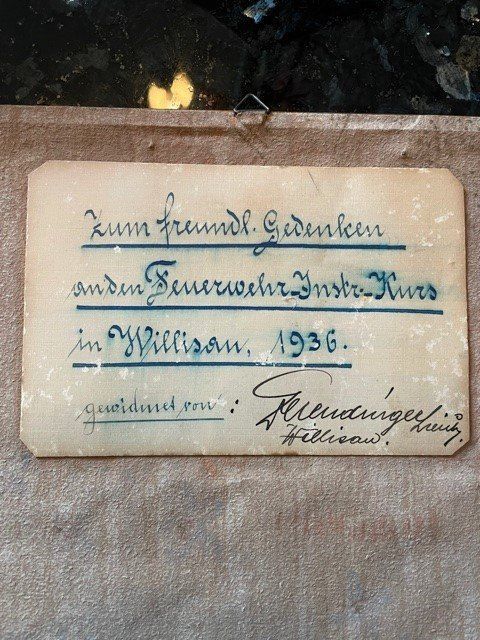 Zum freundl. Gedenken
an den Feuerwehr-Instr.-Kurs
in Willisau, 1936.
gewidmet von :
Willisau.